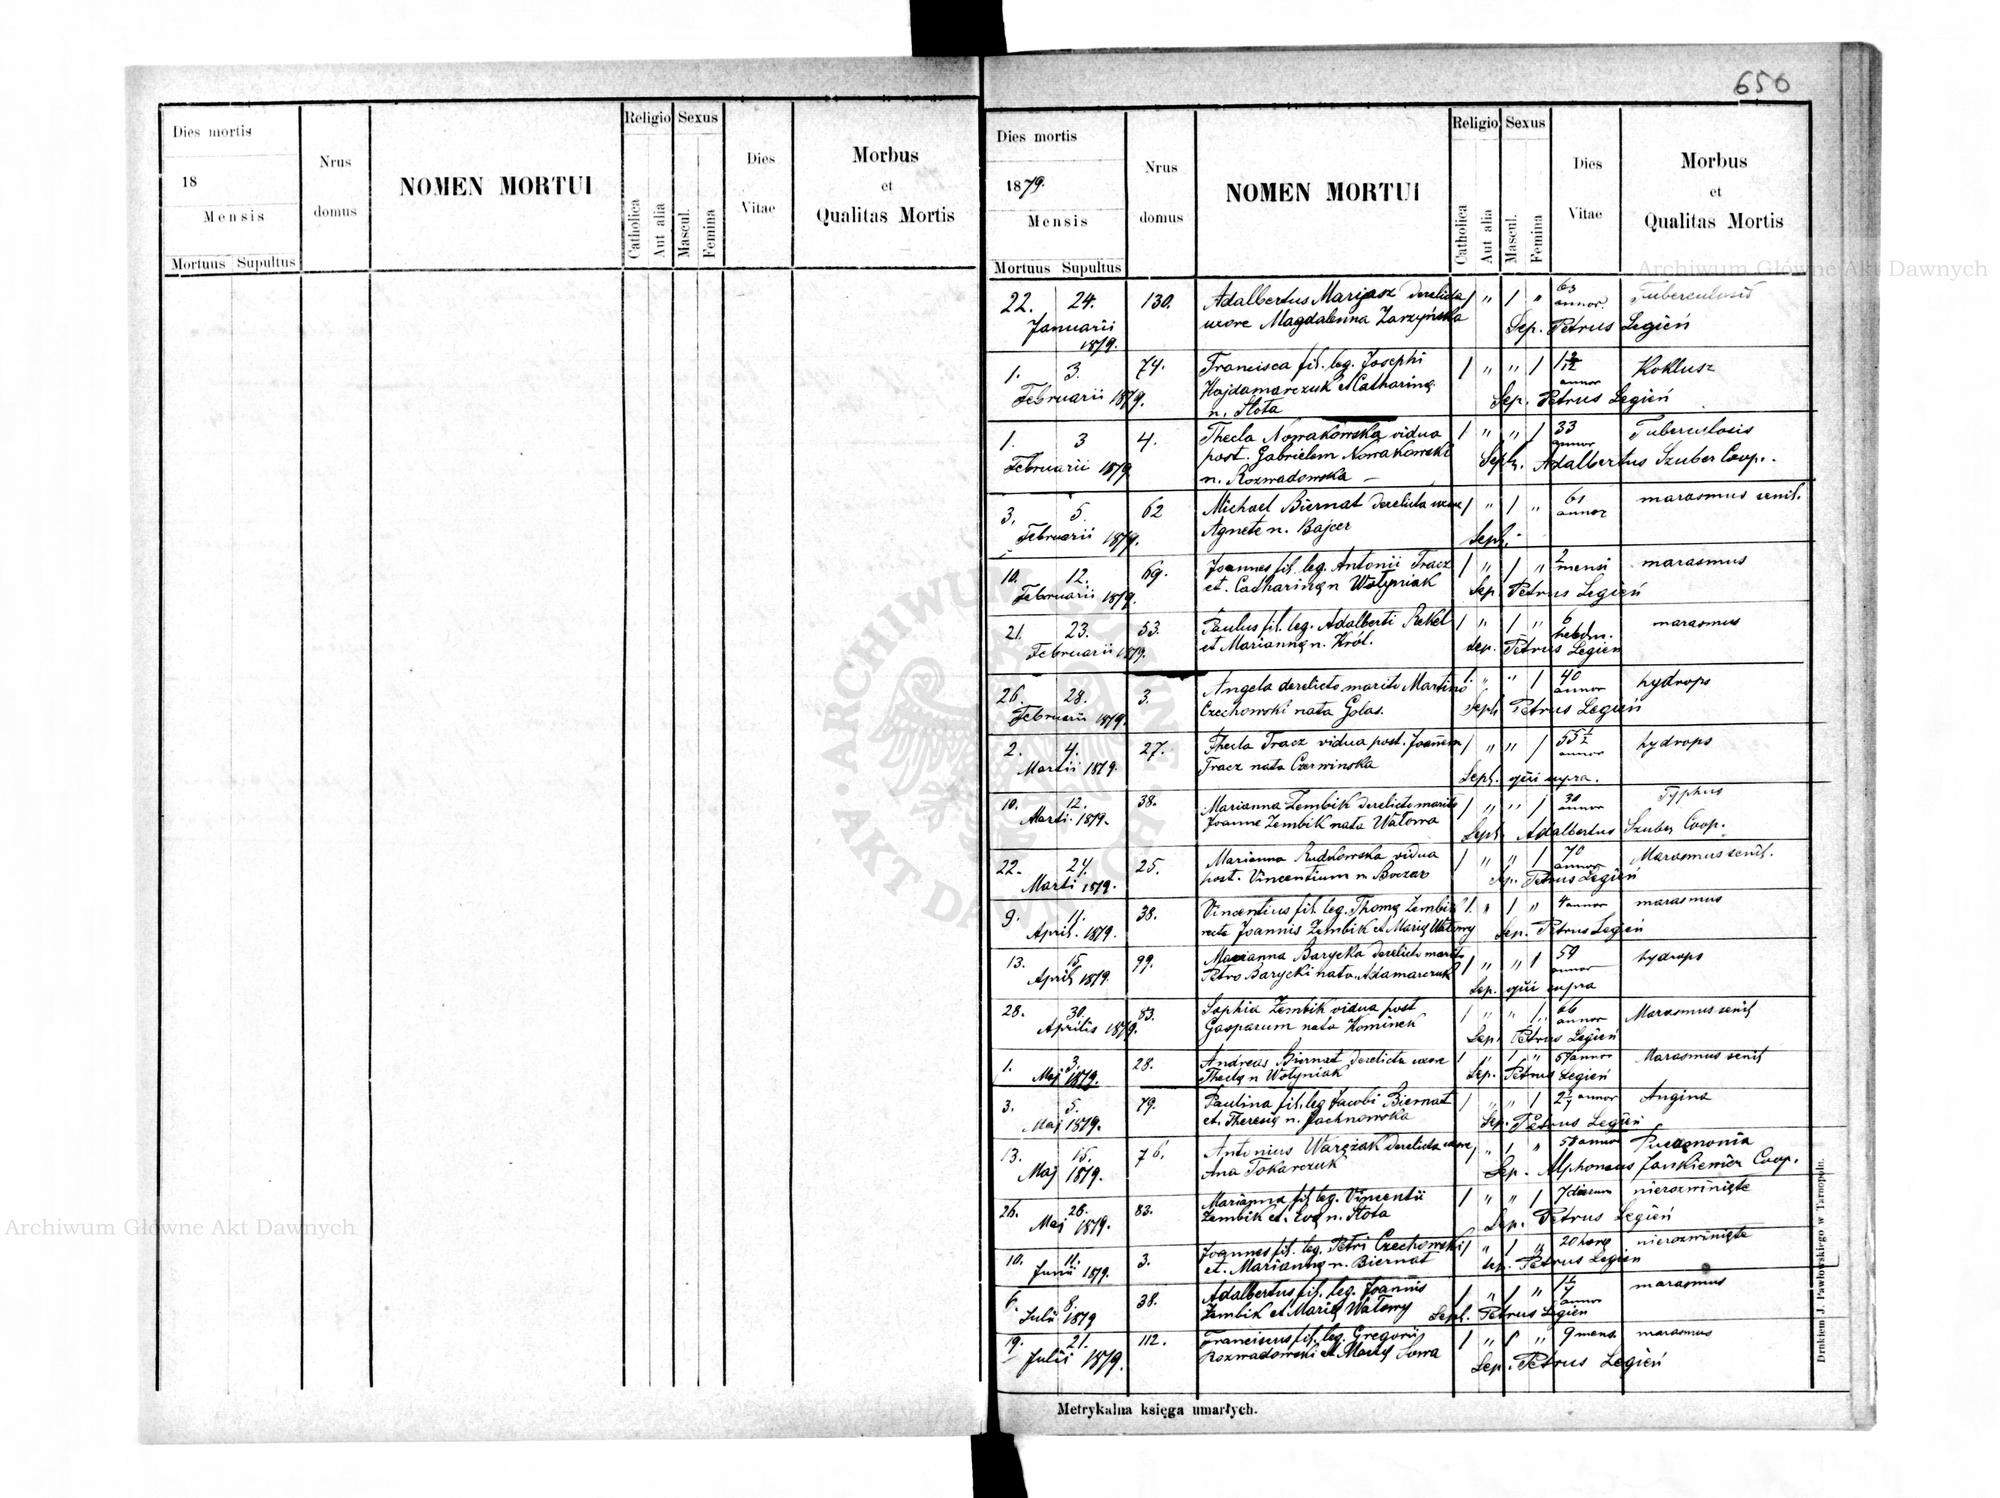 650
Dies mortis
18
Mensis
Mortuus Supultus
Nrus
domus
NOMEN MORTUI
Religio
Catholica
Aut alia
Sexus
Mascul.
Femina
Dies
Vitae
Morbus
et
Qualitas Mortis
Dies mortis
1879.
Mensis
Mortuus Supultus
Nrus
domus
NOMEN MORTUI
Religio
Catholica
Aut alia
Sexus
Mascul.
Femina
Dies
Vitae
Morbus
et
Qualitas Mortis
22. 24. 130. Adalbertus Marjasz derelicta 1 " 1 " 63 Tuberculosis
Januarii uxore Magdalenna Zarzyńska annor
1879. Sep. Petrus Legień
1. 3. 74. Francisca fil. leg. Josephi 1 " " 1 1 2/12 Koklusz
Februarii 1879. Hajdamarczuk et Catharinę annor
n. Słota Sep. Petrus Legień
1. 3 4. Thecla Nowakowska vidua 1 " " 1 33 Tuberculosis
Februarii 1879 post. Gabrielem Nowakowski annor
n. Rozwadowska – Seph. Adalbertus Szuber Coop.
3. 5. 62 Michael Biernat derelicta uxore 1 " 1 " 61 marasmus senil.
Februarii 1879. Agnete n. Bajcer annor
Seph.
10. 12. 69. Joannes fil. leg. Antonii Tracz 1 " 1 " 2 mensi marasmus
Februarii 1879. et. Catharinę n Wołyniak Sep. Petrus Legień
21. 23. 53. Paulus fil. leg. Adalberti Rekel 1 " 1 " 6 hebdm. marasmus
Februarii 1879. et Mariannę n. Król. Sep. Petrus Legień
26. 28. 3. Angela derelicto marito Martino 1. " " 1 40 annor hydrops
Februarii 1879. Czechowski nata Golas. Seph Petrus Legień
2. 4. 27. Thecla Tracz vidua post. Joannem 1 " " 1 55 1/2 annor hydrops
Martii 1879. Tracz nata Czerwinska
Seph. qui supra.
10. 12. 38. Marianna Zembik derelicto marito 1 " " 1 30 annor Typhus
Marti. 1879. Joanne Zembik nata Wałowa Seph. Adalbertus Szuber Coop.
22. 24. 25. Marianna Rudkowska vidua 1 " " 1 70 annor Marasmus senil.
Marti 1879. post. Vincentium n Boczar Sep. Petrus Legień
9. 11. 38. Vincentius fil. leg. Thomę Zembik 1. " 1 " 4 annor marasmus
April. 1879. recte Joannis Zembik et Marię Wałowy Sep. Petrus Legień
13. 15. 99. Marianna Barycka derelicto marito 1 " " 1 59 annor hydrops
April 1879. Petro Barycki nata Adamarczuk Sep. qui supra
28. 30. 83. Sophia Zembik vidua post 1 " " 1 66 annor Marasmus senil
Aprilis 1879. Gasparum nata Kominek Sep. Petrus Legień
1. 3. 28. Andreas Biernat derelicta uxore 1 " 1 " 57 annor Marasmus senil
Maj 1879. Theclę n Wołyniak Sep. Petrus Legień
3. 5. 79. Paulina fil. leg Jacobi Biernat 1 " " 1 annor Angina
Maj 1879. et. Theresię n. Jachnowska Sep. Petrus Legień
13. 15. 76. Antonius Warężak derelicta uxore 1 " 1 " 58 annor
Maj 1879. Ana Tokarczuk Sep. Alphonsus Jankiewicz Coop.
26. 28. 83. Marianna fil. leg. Vincentii 1 " " 1 7 dierum nierozwinięte
Maj 1879. Zembik et. Evę n. Słota Sep. Petrus Legień
10. 11. 3. Joannes fil. leg. Petri Czechowski 1 " 1 " 20 horę nierozwinięte
Junii 1879. et. Mariannę n. Biernat Sep. Petrus Legien
6. 8. 38. Adalbertus fil. leg. Joannis 1 " 1 " annor marasmus
Julii 1879 Zembik et Marię Wałowy Seph. Petrus Legien
19. 21. 112. Franciscus fil. leg. Gregorii 1 " 1 " 9 mens. marasmus
Julii 1879. Rozwadowski et Marię Sowa Sep. Petrus Legień
Metrykalna księga umarłych.
Drukiem J. Pawłowskiego w Tarnopolu.
Archiwum Główne Akt Dawnych
Archiwum Główne Akt Dawnych
ARCHIWUM GŁÓWNE AKT DAWNYCH